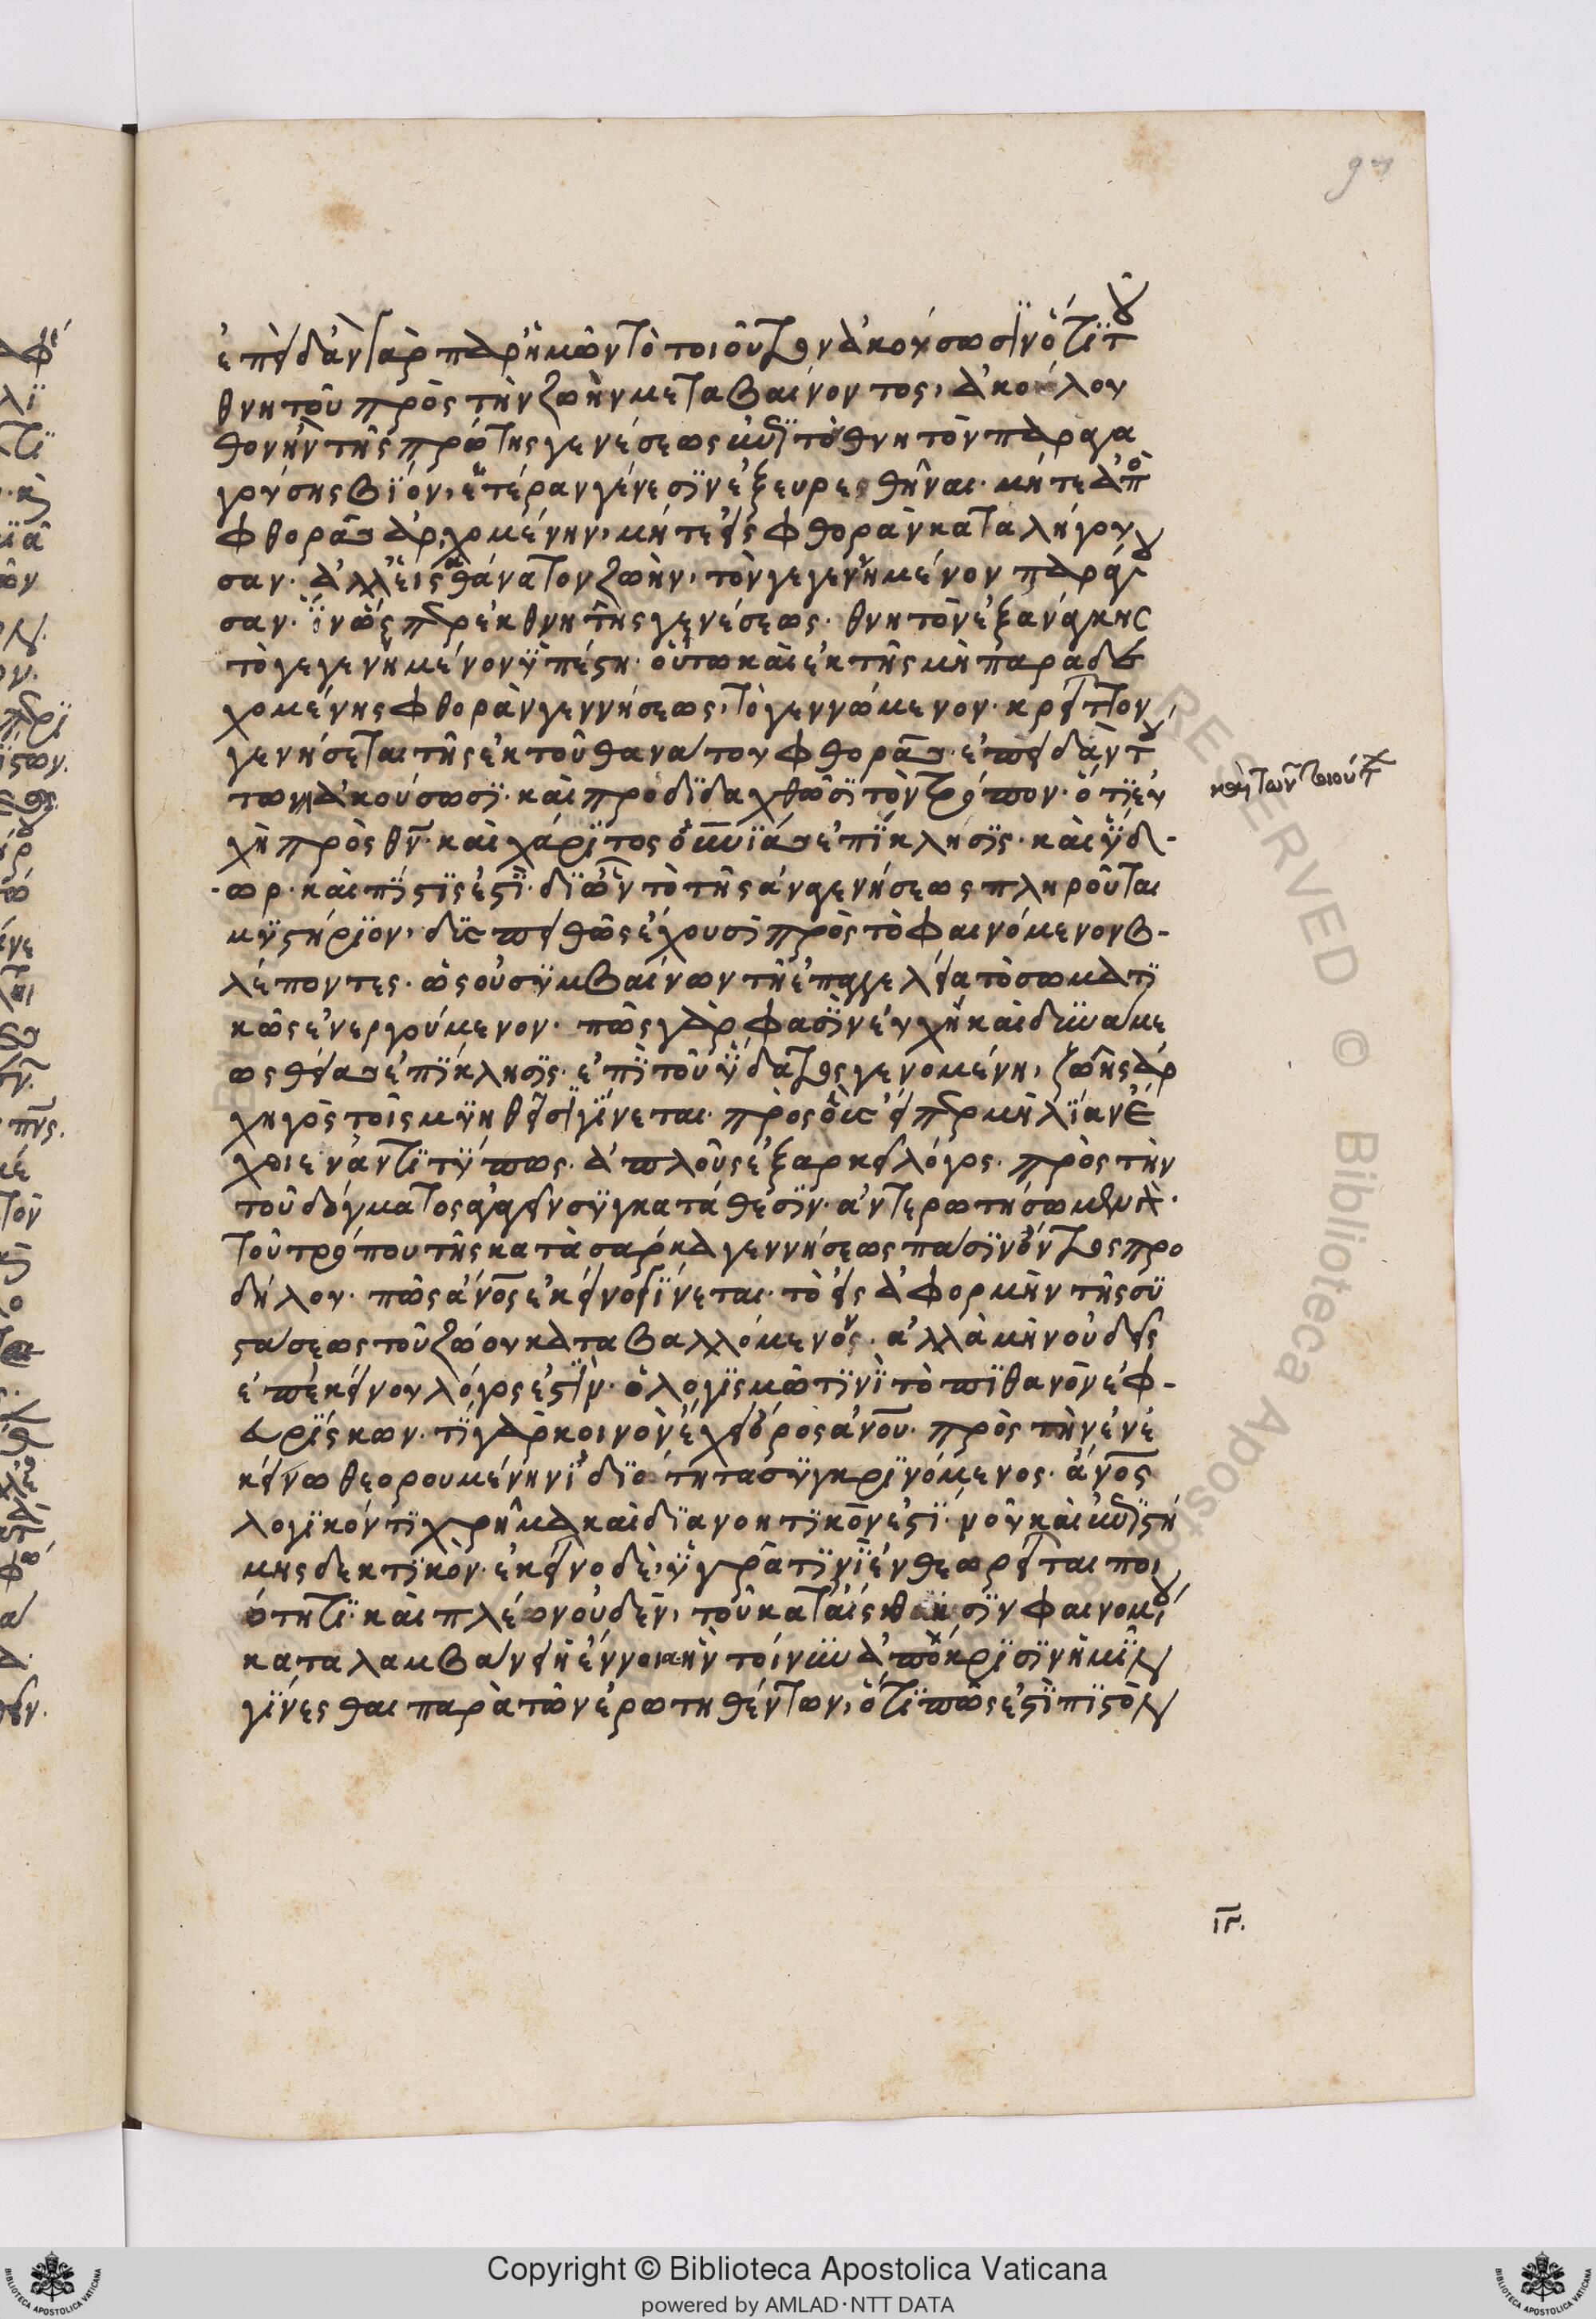 ἐπειδὰν γὰρ παρ' ἡμῶν τὸ τοιοῦτον ἀκούσωσιν ὅτι τοῦ
θνητοῦ πρὸς τὴν ζωὴν μεταβαίνοντος, ἀκόλου
θον ἦν τῆς πρώτης γενέσεως ἐπὶ τὸν θνητὸν παραγα
γούσης βίον, ἑτέραν γένεσιν ἐξευρεθῆναι. μήτε ἀπὸ
φθορᾶς ἀρχομένην, μήτε εἰς φθορὰν καταλήγου
σαν. ἀλλ' εἰς ἀθάνατον ζωὴν, τὸν γεγενημένον παράγου
σαν. ἵν' ὥσπερ ἐκ θνητῆς γενέσεως. θνητὸν ἐξ ἀνάγκης
τὸ γεγενημένον ὑπέστη. οὕτω καὶ ἐκ τῆς μὴ παραδε
χομένης φθορὰν γεννήσεως, τὸ γεννώμενον. κρεῖττον
γενήσεται τῆς ἐκ τοῦ θανάτου φθορᾶς. ἐπειδὰν τού
των ἀκούσωσι. καὶ προδιδαχθῶσι τὸν τρόπον. ὅτι εὐ
χὴ πρὸς θν. καὶ χάριτος οὐνίας ἐπίκλησις. καὶ ὕδ-
-ωρ. καὶ πίστις ἐστὶ. δι' ὧν τὸ τῆς ἀναγενήσεως πληροῦται
μυστήριον, δισπειθῶς ἔχουσι πρὸς τὸ φαινόμενον β-
λέποντες. ὡς οὐ συμβαίνων τῆ ἐπαγγελεία τὸ σωματι
κῶς ἐνεργούμενον. πῶς γὰρ φασὶν εὐχὴ καὶ δυνάμε
ως θείας ἐπίκλησις. ἐπὶ τοῦ ὕδατος γενομένη, ζωῆς ἀρ
χηγὸς τοῖς μυηθεῖσι γίνεται. πρὸς οὓς εἴπερ μὴ λίαν ἔ
χοιεν ἀντιτύπως. ἁπλοῦς ἐξαρκεῖ λόγος. πρὸς τὴν
τοῦ δόγματος ἀγαγεῖν συγκατάθεσιν. ἀντερωτήσωμεν
τοῦ τρόπου τῆς κατὰ σάρκα γεννήσεως πᾶσιν ὄντος προ
δήλου. πῶς ἄνος ἐκεῖνο γίνεται. τὸ εἰς ἀφορμὴν τῆς συ
στάσεως τοῦ ζώου καταβαλλόμενον. ἀλλὰ μὴν οὐδεὶς
ἐπ' ἐκείνου λόγος ἐστὶν. ὁ λογισμῶ τινὶ τὸ πιθανὸν ἐφ-
ευρίσκων. τί γὰρ κοινὸν ἔχει ὅρος ἀνου. πρὸς τὴν ἐν ἐ
κείνω θεορουμένην ἰδιότητα συγκρινόμενος. ἄνος
λογικόν τι χρῆμα καὶ διανοητικὸν ἐστί. νοῦ καὶ ἐπιστή
μης δεκτικὸν. ἐκεῖνο δὲ, ὑγρᾶ τινὶ ἐνθεωρεῖται ποι
ότητι. καὶ πλέων οὐδὲν, τοῦ κατ' αἴσθησιν φαινομένου
καταλαμβάνει ἡ ἔννοια. ἣν τοίνυν ἀπόκρισιν ἡμῖν
γίνεσθαι παρὰ τῶν ἐρωτηθέντων, ὅτι πῶς ἐστὶ πιστὸν
ιγ.